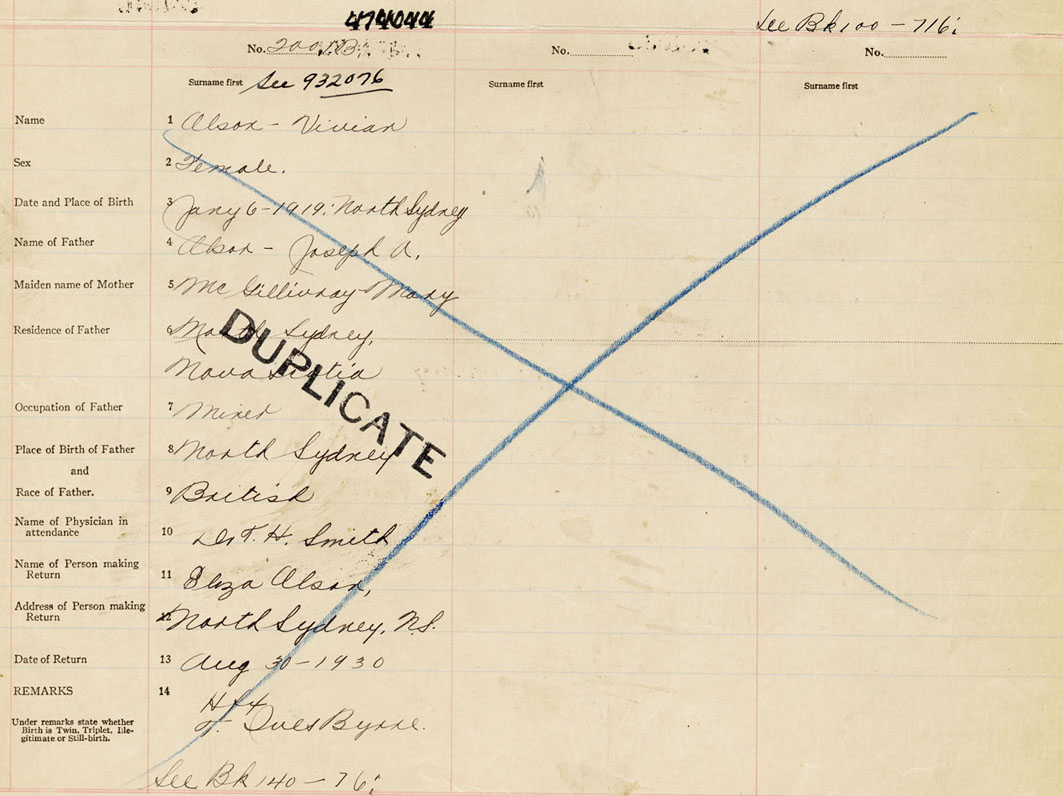 474044
See Bk 100 - 716;
No. No. No.
Surname first See 932076 Surname first Surname first
Name 1 Olson - Vivian
Sex 2 Female.
Date and Place of Birth 3 Jany 6-1919; North Sydney
Name of Father 4 Olson - Joseph A.
Maiden name of Mother 5 McGillivray - Mary
Residence of Father 6 North Sydney,
Nova Scotia
DUPLICATE
Occupation of Father 7 Miner
Place of Birth of Father 8 North Sydney
and
Race of Father. 9 British
Name of Physician in
attendance 10 Dr T. H. Smith
Name of Person making
Return 11 Eliza Olson,
Address of Person making
Return North Sydney, N.S.
Date of Return 13 Aug 30-1930
REMARKS 14
Under remarks state whether
Birth is Twin, Triplet, Ille-
gitimate or Still-birth.
Byrne.
See Bk 140 - 76;